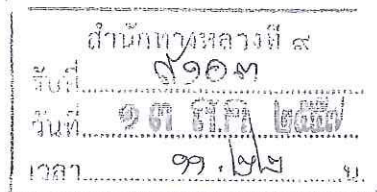 สำนักทางหลวงที่ ๙
รับที่ ๕๑๐๓
วันที่ ๑๓ ๒๕๕๗
เวลา ๑๑.๒๒ น.